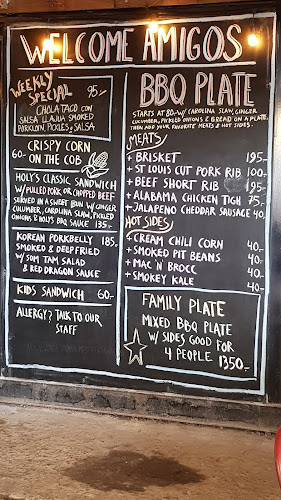 WELCOME AMIGOS
WEEKLY
SPECIAL 95.-
CHOLA TACO CON
SALSA LLAJUA SMOKED
PORKLOIN, PICKLES & SALSA
CRISPY CORN
60.- ON THE COB
HOLY'S CLASSIC SANDWICH
W/ PULLED PORK OR CHOPPED BEEF
SERVED IN A SWEET BUN W/ GINGER
CUCUMBER, CAROLINA SLAW, PICKLED
ONIONS & HOLY'S BBQ SAUCE 135.-
KOREAN PORKBELLY 185.
SMOKED & DEEPFRIED
W/ SOM TAM SALAD
& RED DRAGON SAUCE
KIDS SANDWICH 60.-
ALLERGY? TALK TO OUR
STAFF
BBQ PLATE
STARTS AT 80.- W/ CAROLINA SLAW, GINGER
CUCUMBER, PICKLED ONIONS & BREAD ON A PLATE.
THEN ADD YOUR FAVORITE MEATS & HOT SIDES.
MEATS
+ BRISKET 195.-
+ ST LOUIS CUT PORK RIB 100.-
+ BEEF SHORT RIB 195.-
+ ALABAMA CHICKEN TIGH 75.-
+ JALAPENO CHEDDAR SAUSAGE 40.-
HOT SIDES
+ CREAM CHILI CORN 40.-
+ SMOKED PIT BEANS 40.-
+ MAC 'N' BROCC 40.-
+ SMOKEY KALE 40.-
FAMILY PLATE
MIXED BBQ PLATE
W/ SIDES GOOD FOR
4 PEOPLE 1350.-